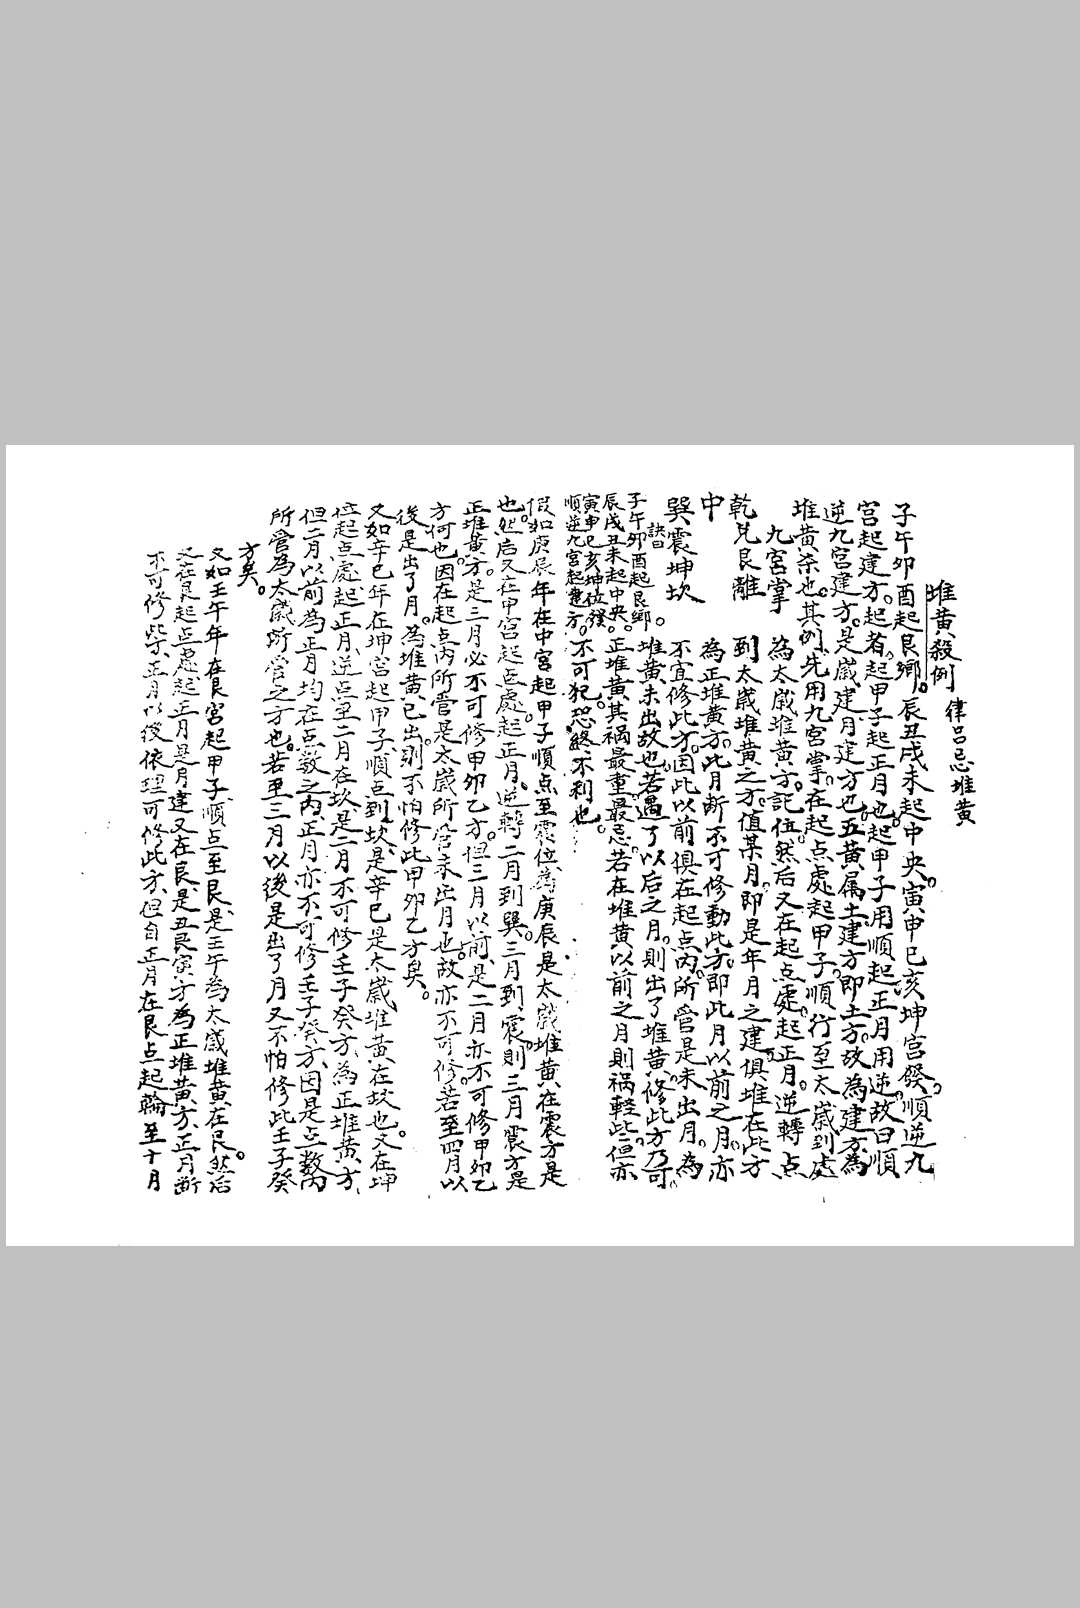 堆黃殺例　律呂忌堆黃
子午卯酉起艮鄉。辰丑戌未起中央。寅申巳亥坤宮發。順逆九
宮起建方。起者。起甲子起正月也。起甲子用順起正月用逆。故曰順
逆九宮建方。是歲建月建方也。五黃属土。建方即土方。故為建方為
堆黃杀也。其例、先用九宮掌。在起点處起甲子。順行至太歲到处
九宮掌　為太歲堆黃方。記位。然后又在起点處起正月。逆轉点
乾兌艮離　到太歲堆黃之方。值某月。即是年月之建俱堆在此方
中　為正堆黃方。此月断不可修動此方。即此月以前之月。亦
巽震坤坎　不宜修此方。因此以前俱在起点內。所管是未出月。為
訣曰　堆黃未出故也。若過了以后之月。則出了堆黃。修此方乃可。
子午卯酉起艮鄉。
辰戌丑未起中央。正堆黃其禍最重最忌。若在堆黃以前之月則禍輕些。但亦
寅申巳亥坤位發。
順逆九宮起建方。不可犯。恐終不利也。
假如庚辰年在中宮起甲子順点至震位為庚辰是太歲堆黃在震方是
也。然后又在中宮起点處。起正月、逆轉二月到巽。三月到震則三月震方是
正堆黃方。是三月必不可修甲卯乙方。但三月以前、是二月亦不可修甲卯乙
方何也。因在起点內所管是太歲所管未出月也。故亦不可修。若至四月以
後是出了月。為堆黃已出。則不怕修此甲卯乙方矣。
又如辛巳年在坤宮起甲子順点到坎、是辛巳是太歲堆黃在坎也。又在坤
位起点處起正月逆点至二月在坎是二月不可修壬子癸方、為正堆黃方
但二月以前為正月均在点数之內、正月亦不可修壬子癸方、因是点数內
所管為太歲所管之方也。若至三月以後是出了月又不怕修此壬子癸
方矣。
又如壬午年在艮宮起甲子順点至艮、是壬午為太歲堆黃在艮。然后
又在艮起点處起正月是月建又在艮、是丑艮寅方為正堆黃方正月断
不可修些。正月以後依理可修此方、但自正月在艮点起輪至十月